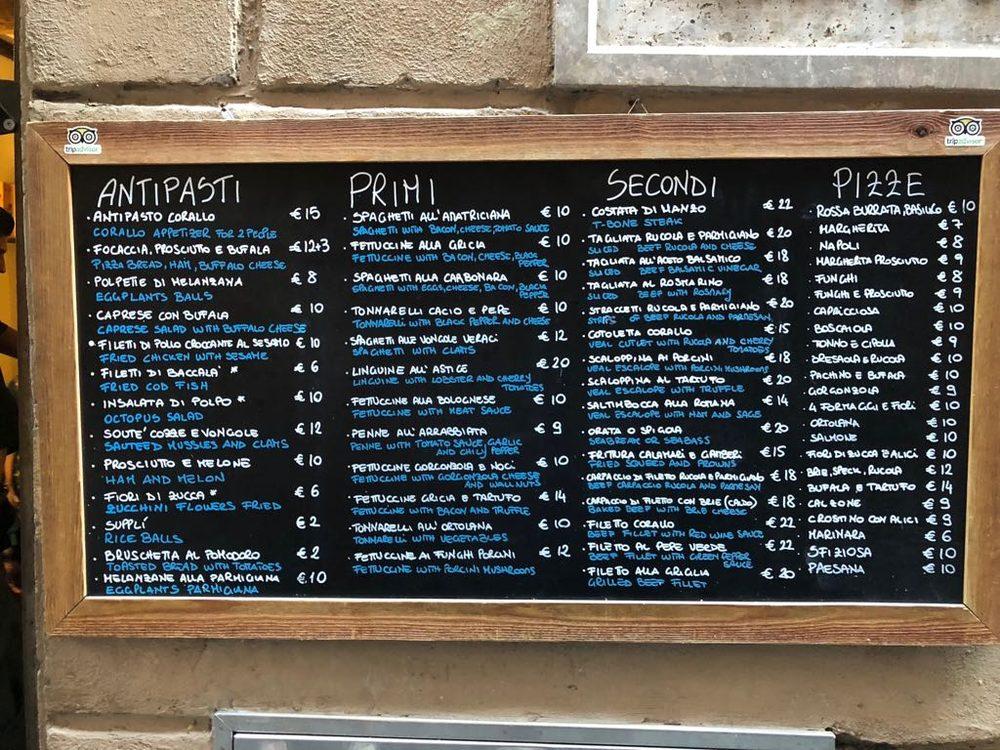 tripadvisor
tripadvisor
ANTIPASTI
· ANTIPASTO CORALLO €15
CORALLO APPETIZER FOR 2 PEOPLE
· FOCACCIA, PROSCIUTTO E BUFALA €12+3
PIZZA BREAD, HAM, BUFFALO CHEESE
· POLPETTE DI MELANZANA € 8
EGGPLANTS BALLS
· CAPRESE CON BUFALA € 10
CAPRESE SALAD WITH BUFFALO CHEESE
* FILETI DI POLLO CROCCANTE AL SESAMO € 10
FRIED CHICKEN WITH SESAME
· FILETTI DI BACCALA' * € 6
FRIED COD FISH
· INSALATA DI POLPO * € 10
OCTOPUS SALAD
· SOUTE' COZZE E VONGOLE € 12
SAUTEED MUSSLES AND CLAMS
· PROSCIUTTO E MELONE € 10
HAM AND MELON
· FIORI DI ZUCCA * € 6
ZUCCHINI FLOWERS FRIED
· SUPPLÍ € 2
RICE BALLS
· BRUSCHETTA AL POMODORO € 2
TOASTED BREAD WITH TOMATOES
· MELANZANE ALLA PARMIGIANA €10
EGGPLANTS PARMIGIANA
PRIMI
· SPAGHETTI ALL'AMATRICIANA € 10
SPAGHETTI WITH BACON, CHEESE, TOMATO SAUCE
· FETTUCINE ALLA GRICIA € 10
FETTUCCINE WITH BACON, CHEESE, BLACK
PEPPER
· SPAGHETTI ALLA CARBONARA € 10
SPAGHETTI WITH EGGS, CHEESE, BACON, BLACK
PEPPER
· TONNARELLI CACIO E PEPE € 10
TONNARELLI WITH BLACK PEPPER AND CHEESE
· SPAGHETTI ALLE VONGOLE VERACI € 12
SPAGHETTI WITH CLAMS
· LINGUINE ALL'ASTICE € 20
LINGUINE WITH LOBSTER AND CHERRY
TOMATOES
· FETTUCINE ALLA BOLOGNESE € 10
FETTUCCINE WITH MEAT SAUCE
· PENNE ALL'ARRABBIATA € 9
PENNE WITH TOMATO SAUCE, GARLIC
AND CHILY PEPPER
· FETTUCINE GORGONZOLA E NOCI € 10
FETTUCINE WITH GORGONZOLA CHEESE
AND WALLNUTS
· FETTUCINE GRICIA E TARTUFO € 14
FETTUCINE WITH BACON AND TRUFFLE
· TONNARELLI ALL'ORTOLANA € 10
TONNARELLI WITH VEGETABLES
· FETTUCINE AI FUNGHI PORCINI € 12
FETTUCCINE WITH PORCINI MUSHROOMS
SECONDI
· COSTATA DI MANZO € 22
T-BONE STEAK
· TAGLIATA RUCOLA E PARMIGIANO € 20
SLICED BEEF RUCOLA AND CHEESE
· TAGLIATA ALL'ACETO BALSAMICO € 18
SLICED BEEF BALSAMIC VINEGAR
· TAGLIATA AL ROSMARINO € 18
SLICED BEEF WITH ROSMARY
· STRACCETTI RUCOLA E PARMIGIANO € 20
STRIPS OF BEEF RUCOLA AND PARMESAN
· COTOLETTA CORALLO € 15
VEAL CUTLET WITH RUCOLA AND CHERRY
TOMATOES
· SCALOPPINA AI PORCINI € 18
VEAL ESCALOPE WITH PORCINI MUSHROOMS
· SCALOPPINA AL TARTUFO € 20
VEAL ESCALOPE WITH TRUFFLE
· SALTIMBOCCA ALLA ROMANA € 14
VEAL ESCALOPE WITH HAM AND SAGE
· ORATA O SPIGOLA € 20
SEABREAM OR SEABASS
· FRITTURA CALAMARI E GAMBERI €15
FRIED SQUEED AND PROWNS
· CARPACCIO DI FILETTO RUCOLA E PARMIGIANO € 18
BEEF CARPACCIO RUCOLA AND PARMESAN
· CARPACCIO DI FILETTO CON BRIE (CALDO) € 18
BAKED BEEF WITH BRIE CHEESE
· FILETTO CORALLO € 22
BEEF FILLET WITH RED WINE SAUCE
· FILETTO AL PEPE VERDE € 22
BEEF FILLET WITH GREEN PEPPER
SAUCE
· FILETTO ALLA GRIGLIA € 20
GRILLED BEEF FILLET
PIZZE
· ROSSA BURRATA, BASILICO € 10
· MARGHERITA € 7
· NAPOLI € 8
· MARGHERITA PROSCIUTTO € 9
· FUNGHI € 8
· FUNGHI E PROSCIUTTO € 9
· CAPRICCIOSA € 10
· BOSCAIOLA € 10
· TONNO E CIPOLLA € 9
· BRESAOLA E RUCOLA € 10
· PACHINO E BUFALA € 10
· GORGONZOLA € 9
· 4 FORMAGGI E FIORI € 10
· ORTOLANA € 10
· SALMONE € 10
· FIORI DI ZUCCA E ALICI € 10
· BRIE, SPECK, RUCOLA € 12
· BUFALA E TARTUFO € 14
· CALZONE € 9
· CROSTINO CON ALICI € 9
· MARINARA € 6
· SFIZIOSA € 10
· PAESANA € 10